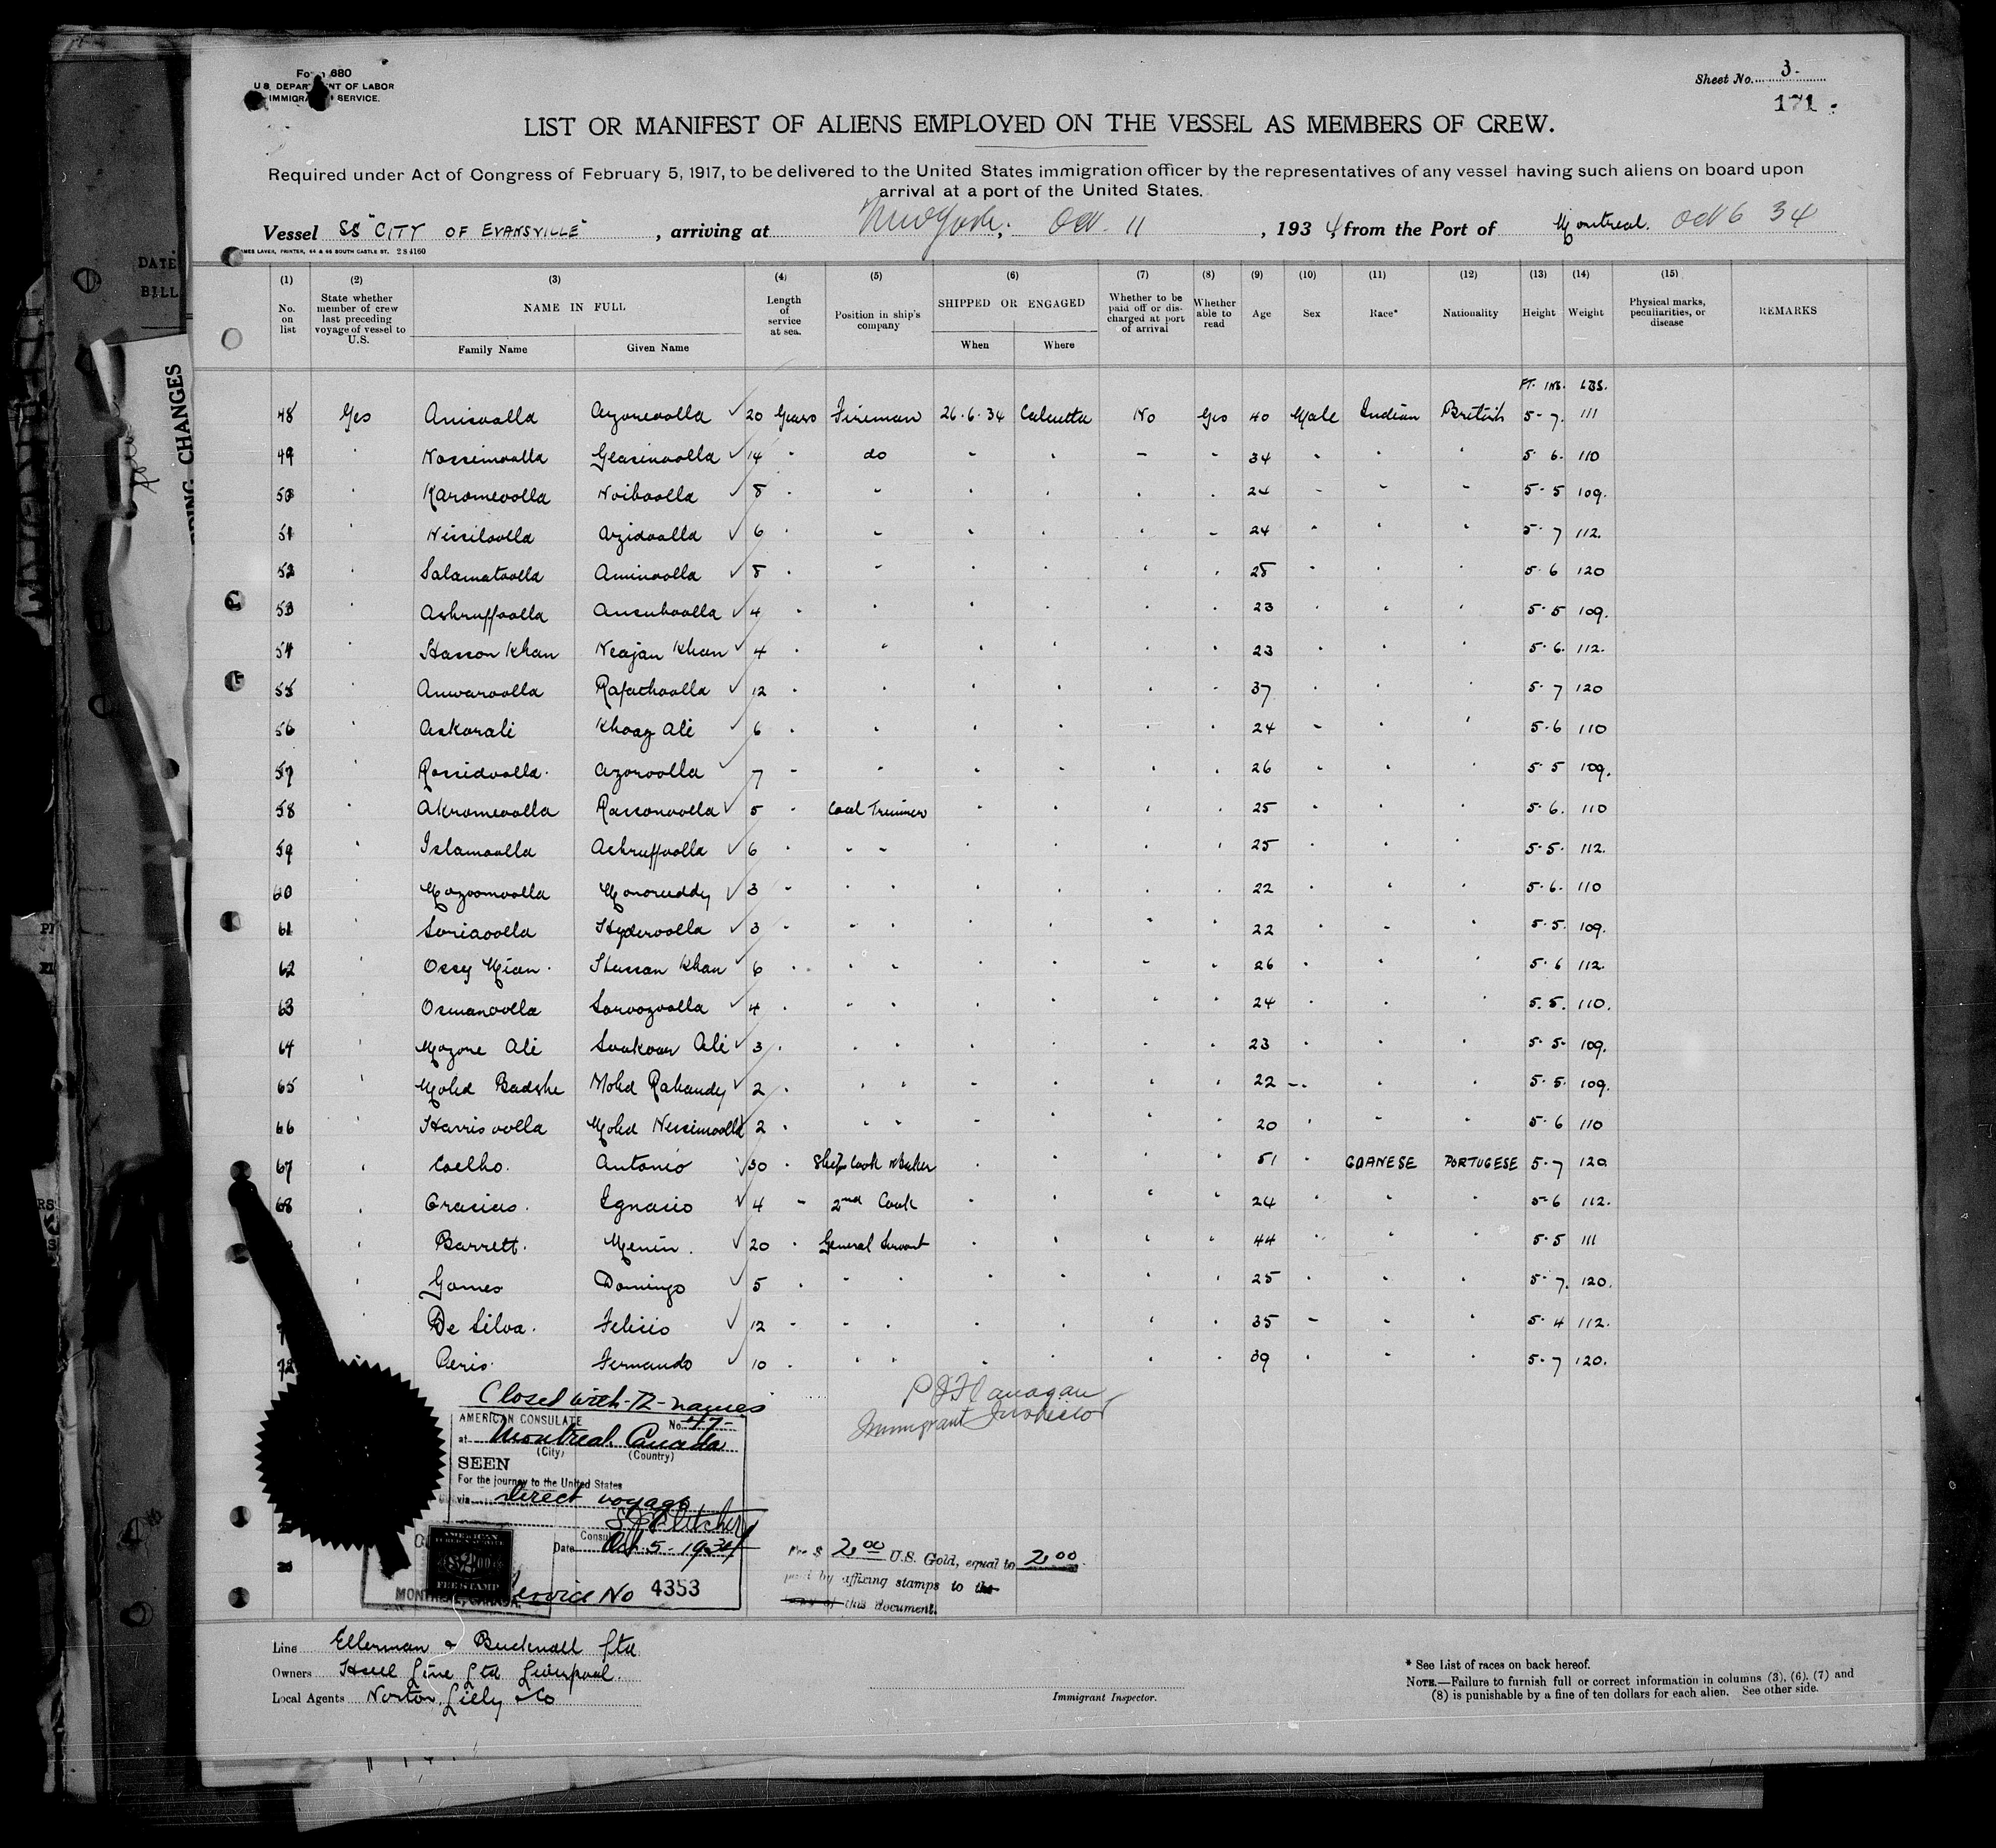 Form 680
U.S. DEPARTMENT OF LABOR
IMMIGRATION SERVICE.
Sheet No. 3.
171
LIST OR MANIFEST OF ALIENS EMPLOYED ON THE VESSEL AS MEMBERS OF CREW.
Required under Act of Congress of February 5, 1917, to be delivered to the United States immigration officer by the representatives of any vessel having such aliens on board upon
arrival at a port of the United States.
Vessel SS "CITY OF EVANSVILLE", arriving at New York, Oct. 11, 1934, from the Port of Montreal. Oct 6 34
(1) (2) (3) (4) (5) (6) (7) (8) (9) (10) (11) (12) (13) (14) (15)
No. on list State whether member of crew last preceding voyage of vessel to U.S. NAME IN FULL Family Name Given Name Length of service at sea. Position in ship's company SHIPPED OR ENGAGED When Where Whether to be paid off or discharged at port of arrival Whether able to read Age Sex Race* Nationality Height Weight Physical marks, peculiarities, or disease REMARKS
FT. INS. LBS.
48 Yes Anisoolla Azomeoolla 20 Years Fireman 26.6.34 Calcutta No Yes 40 Male Indian British 5-7. 111
49 " Nossimoolla Geasinoolla 14 " do " " " " 34 " " " 5 6. 110
50 " Karomeoolla Noiboolla 8 " " " " " " 24 " " " 5-5 109.
51 " Nissiloolla Azidoolla 6 " " " " " " 24 " " " 5-7 112.
52 " Salamatoolla Aminoolla 8 " " " " " " 28 " " " 5 6 120
53 " Ashruffoolla Ansuboolla 4 " " " " " " 23 " " " 5.5 109.
54 " Hasson Khan Neajan Khan 4 " " " " " " 23 " " " 5.6. 112.
55 " Anwaroolla Rafathoolla 12 " " " " " " 37 " " " 5-7 120
56 " Askorali Khoaz Ali 6 " " " " " " 24 " " " 5-6 110
57 " Rossidoolla. Azoroolla 7 " " " " " " 26 " " " 5 5 109.
58 " Akromeoolla Rassonoolla 5 " Coal Trimmer " " " " 25 " " " 5.6. 110
59 " Islamoolla Ashruffoolla 6 " " " " " " " 25 " " " 5.5. 112.
60 " Mozoomoolla Monoruddy 3 " " " " " " " 22 " " " 5.6. 110
61 Soriaoolla Hyderoolla 3 " " " " " " " 22 " " " 5.5. 109.
62 " Ossy Mian. Hussan Khan 6 " " " " " " " 26 " " " 5.6 112.
63 " Osmanoolla Soroozoolla 4 " " " " " " " 24 " " " 5.5. 110.
64 " Mozone Ali Sookoor Ali 3 " " " " " " " 23 " " " 5.5. 109.
65 " Mohd Badshe Mohd Rahamdy 2 " " " " " " " 22 " " " 5.5. 109.
66 " Harrisoolla Mohd Nessimoolla 2 " " " " " " " 20 " " " 5.6 110
67 " Coelho. Antonio 30 " Ship's Cook & Baker " " " " 51 " GOANESE PORTUGESE 5-7 120
68 " Gracias. Ignacio 4 " 2nd Cook " " " " 24 " " " 5-6 112.
" Barrett. Menin. 20 " General Servant " " " " 44 " " " 5.5 111
" Gomes Domingo 5 " " " " " " " 25 " " " 5-7. 120.
De Silva. Felicio 12 " " " " " " " 35 " " " 5-4 112.
72 " Peris. Fernando 10 " " " " " " " 39 " " " 5-7 120.
Closed with -72- names
P J Flanagan
Immigrant Inspector
AMERICAN CONSULATE No. 47-
at Montreal, Canada
(City) (Country)
SEEN
For the journey to the United States
via Direct voyage
Consul
Date Oct. 5-1934
AMERICAN
$2.00
FEE STAMP
MONTREAL, CANADA.
Service No 4353
Fee $ 2.00 U.S. Gold, equal to 2.00
paid by affixing stamps to the
this document.
Line Ellerman & Bucknall Ltd
Owners Hall Line Ltd Liverpool.
Local Agents Norton, Lilly & Co
Immigrant Inspector.
* See List of races on back hereof.
NOTE.—Failure to furnish full or correct information in columns (3), (6), (7) and
(8) is punishable by a fine of ten dollars for each alien. See other side.
DATE
BILL
CHANGES